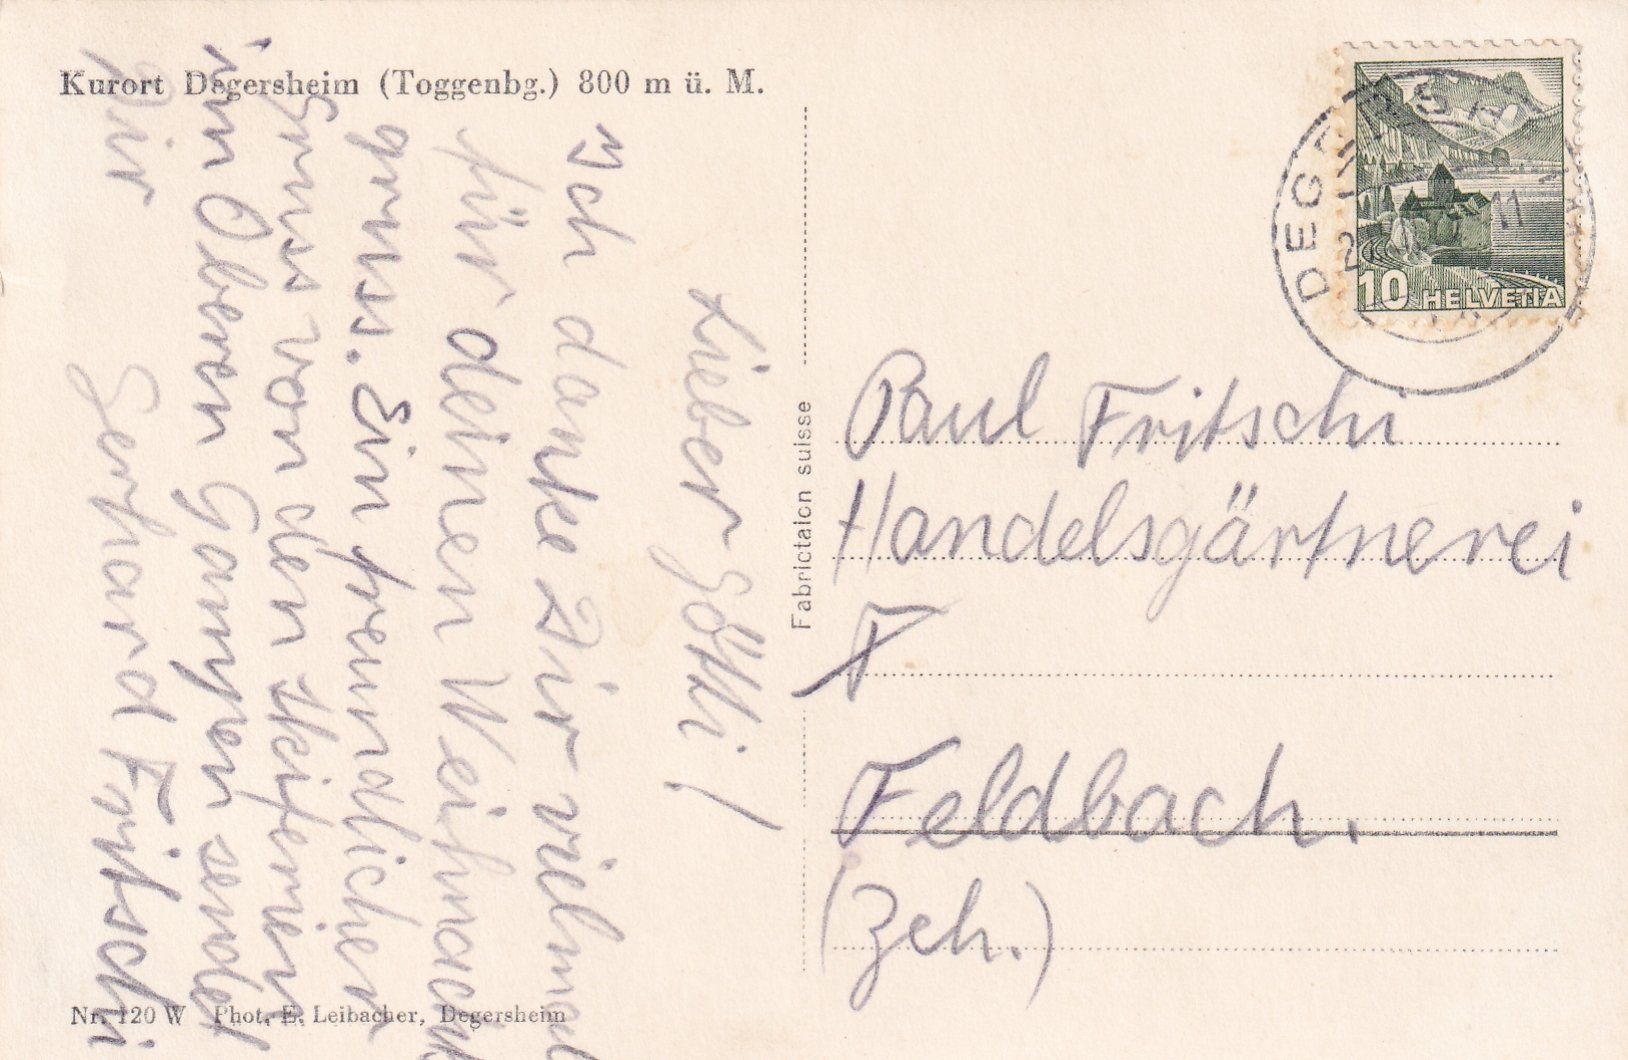 Kurort Degersheim (Toggenbg.) 800 m ü. M.
Lieber Götti!
Ich danke Dir vielmal
für deinen Weihnacht
gruss. Ein freundlicher
Gruss von den Skiferien
im Oberen Gampen sendet
Dir Gerhard Fritschi
Fabrictaion suisse
10 HELVETIA
Paul Fritschi
Handelsgärtnerei
F
Feldbach.
(Zch.)
Nr. 120 W Phot. E. Leibacher, Degersheim